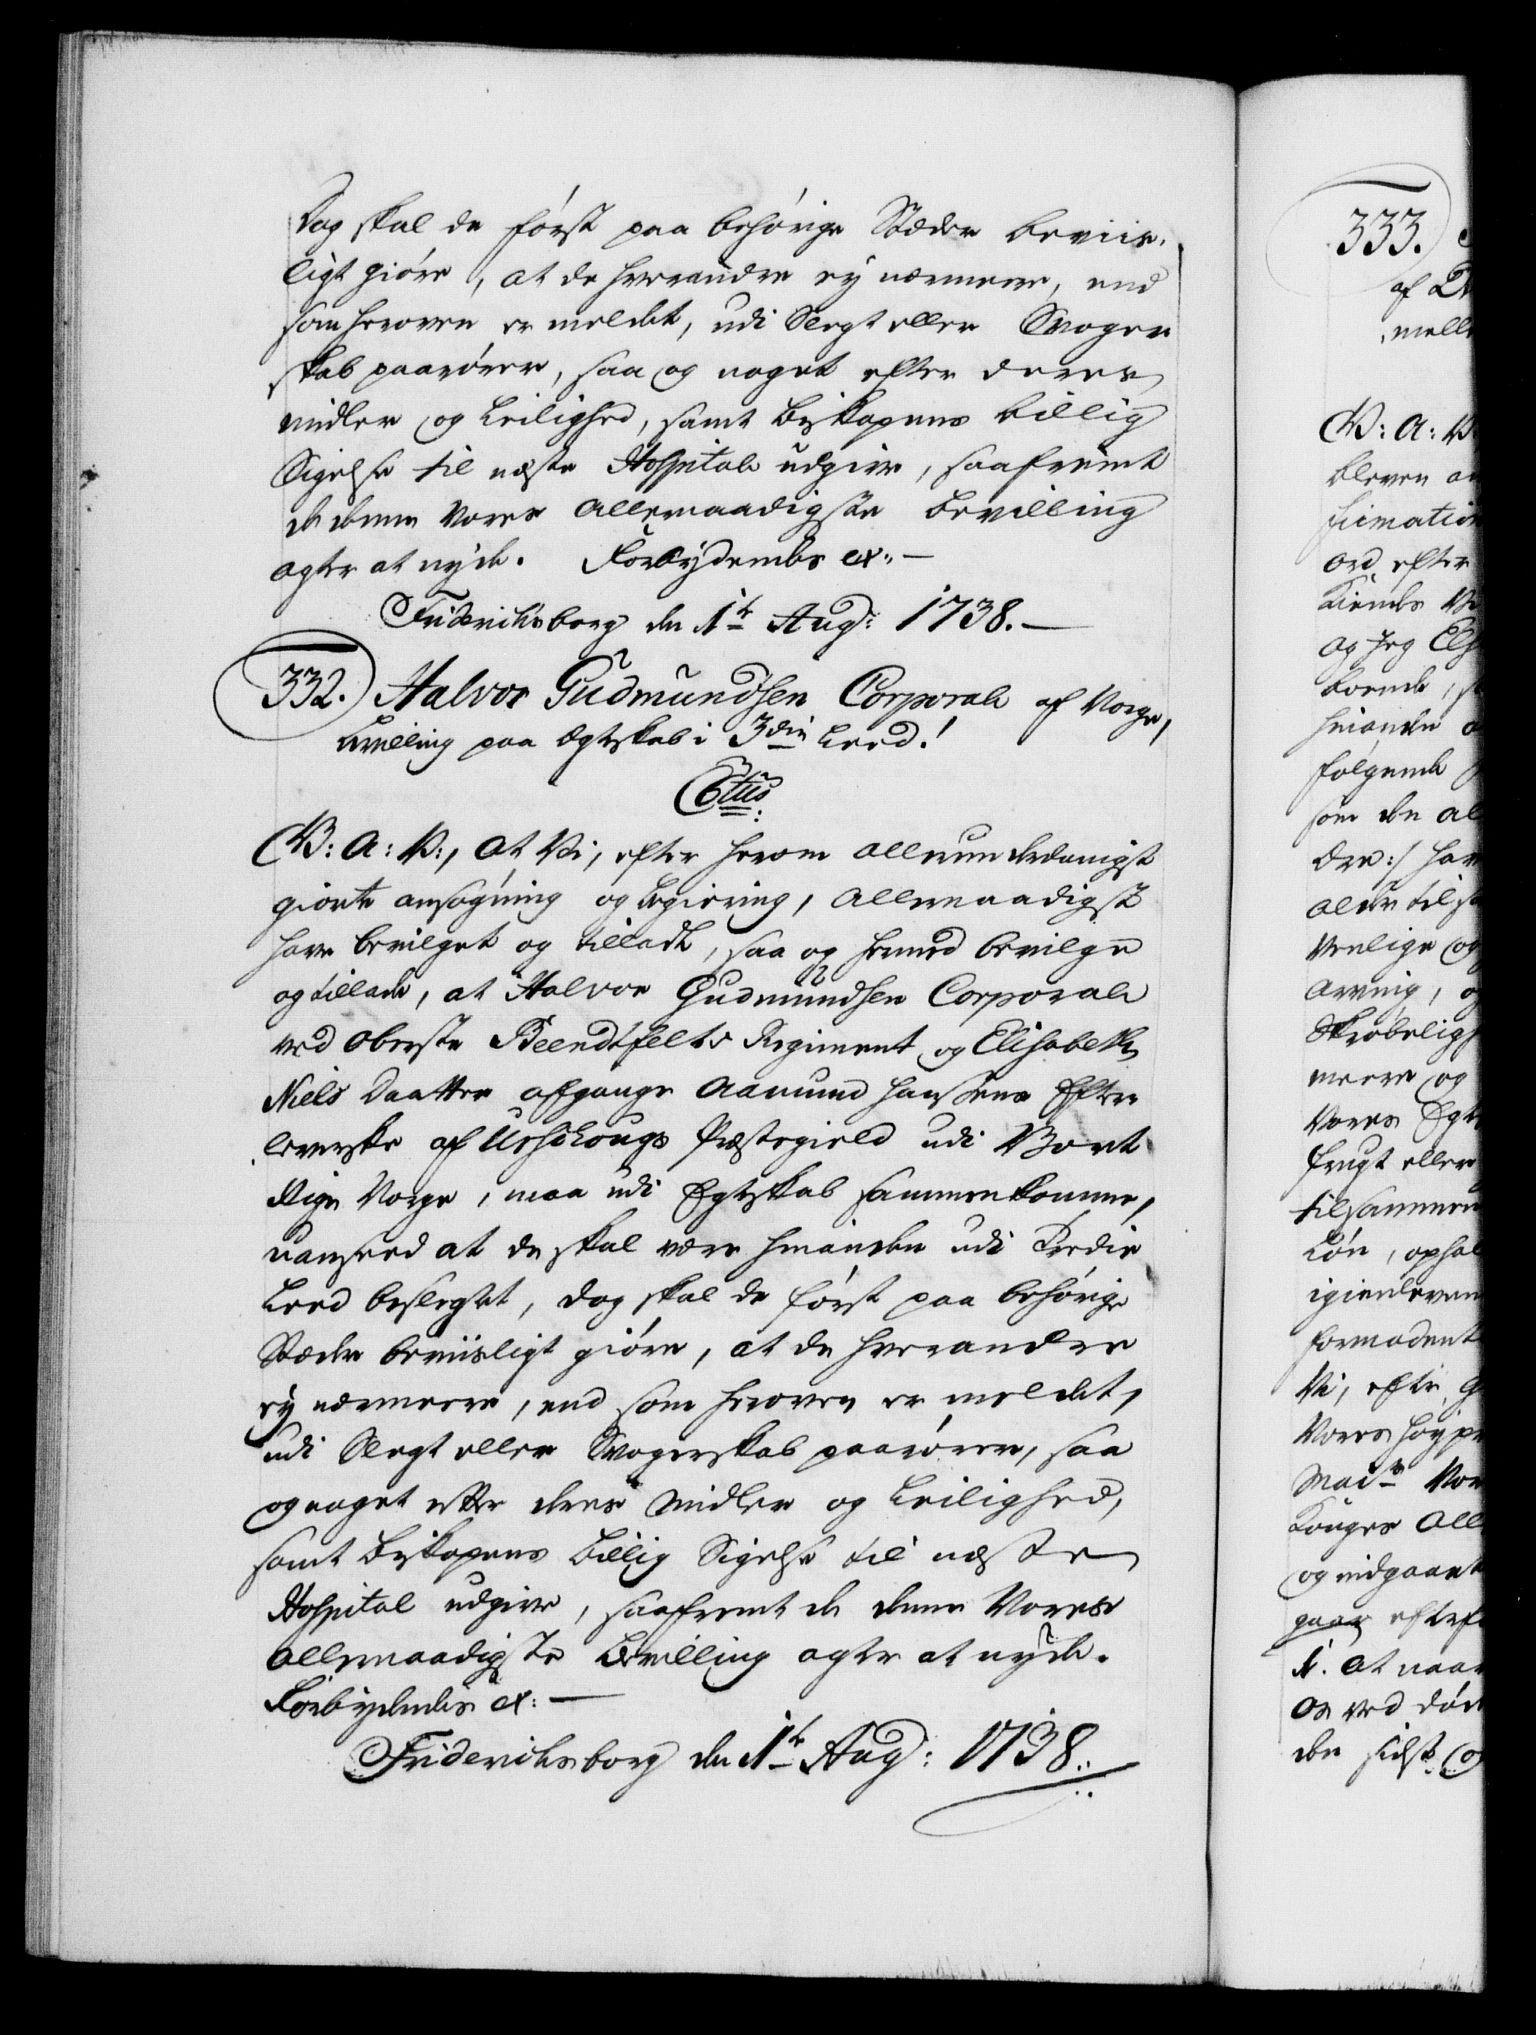 Dog skal de først paa behörige Stæder beviis-
ligt giöre, at de hverandre ey nærmere, end
som heroven er meldet, udi Slegt eller Svoger
skab paarörer, saa og noget efter deres
midler og Leilighed, samt Biskopens billig
Sigelse til næste Hospitale udgive, saafremt
de denne Vores Allernaadigste Bevilling
agter at nyde. Forbydendes etc:-
Friderichsborg den 1te Aug: 1738.-
332. Halvor Gudmundsen Corporale af Norge,
Bevilling paa Ægteskab i 3die Leed.
C6tus.
G: A: V:, At Vi, efter herom allerunderdanigst
giorte ansøgning og begiering, Allernaadigst
have bevilget og tilladt, saa og hermed bevilge
og tillade, at Halvor Gudmundsen Corporale
ved Oberste Beendtfelts Regiment, og Elisabeth
Niels Daatter afgangne Aamund Hansens Efter-
leverske af Urschougs Præstegield udi Vort
Rige Norge, maa udi Egteskab sammenkomme,
uanseed at de skal være hinanden udi Tredie
Leed beslegtet, dog skal de först paa behörige
Stæder beviisligt giöre, at de hverandre
ey nærmere, end som heroven er meldet,
udi Slegt eller Svogerskab paarörer, saa
og noget efter deres Midler og Leilighed,
samt Biskopens billig Sigelse til næste
Hospital udgive, saafremt de denne Vores
allernaadigste Bevilling agter at nyde.
Forbydendes etc:-
Friderichsborg den 1te Aug: 1738.
333.
af
mell
G: A: V:
bleven
firmation
ord efter
Kiendes
og Jeg
boende,
hinanden
fölgende
som den
dre:/ har
alder til
venlige og
Arving,
Skröbeligh
meere og
Vores Egte
frugt eller
tilsammen
Lön, ophol
igienleven
formodent
Vi, efter
Vores höy
Maits Vor
Konges All
og indgaaet
gaar efterf
1. At naar
Os ved död
den sidst